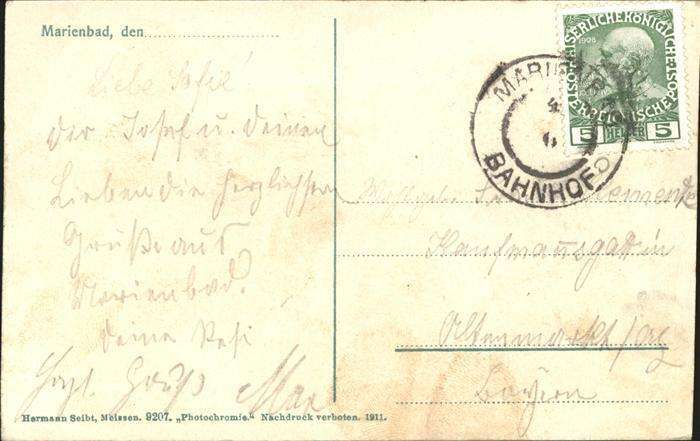 Marienbad, den
Liebe Sofie!
Dir Josef u. Deinen
Lieben die herzlichsten
Grüße aus
Marienbad.
Deine Resi
Herzl. Gruß Max
Hermann Seibt, Meissen. 9207. „Photochromie." Nachdruck verboten. 1911.
KAISERLICHE KÖNIGLICHE
1908
ÖSTERREICHISCHE POST
5 HELLER 5
MARIENBAD
BAHNHOF
Kaufmannsgattin
Altenmarkt
Bayern